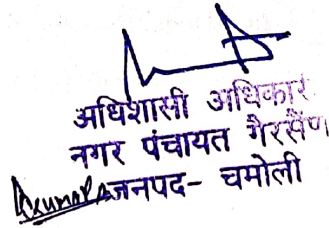 अधिशासी अधिकार
नगर पंचायत गैरसैंण
जनपद- चमोली